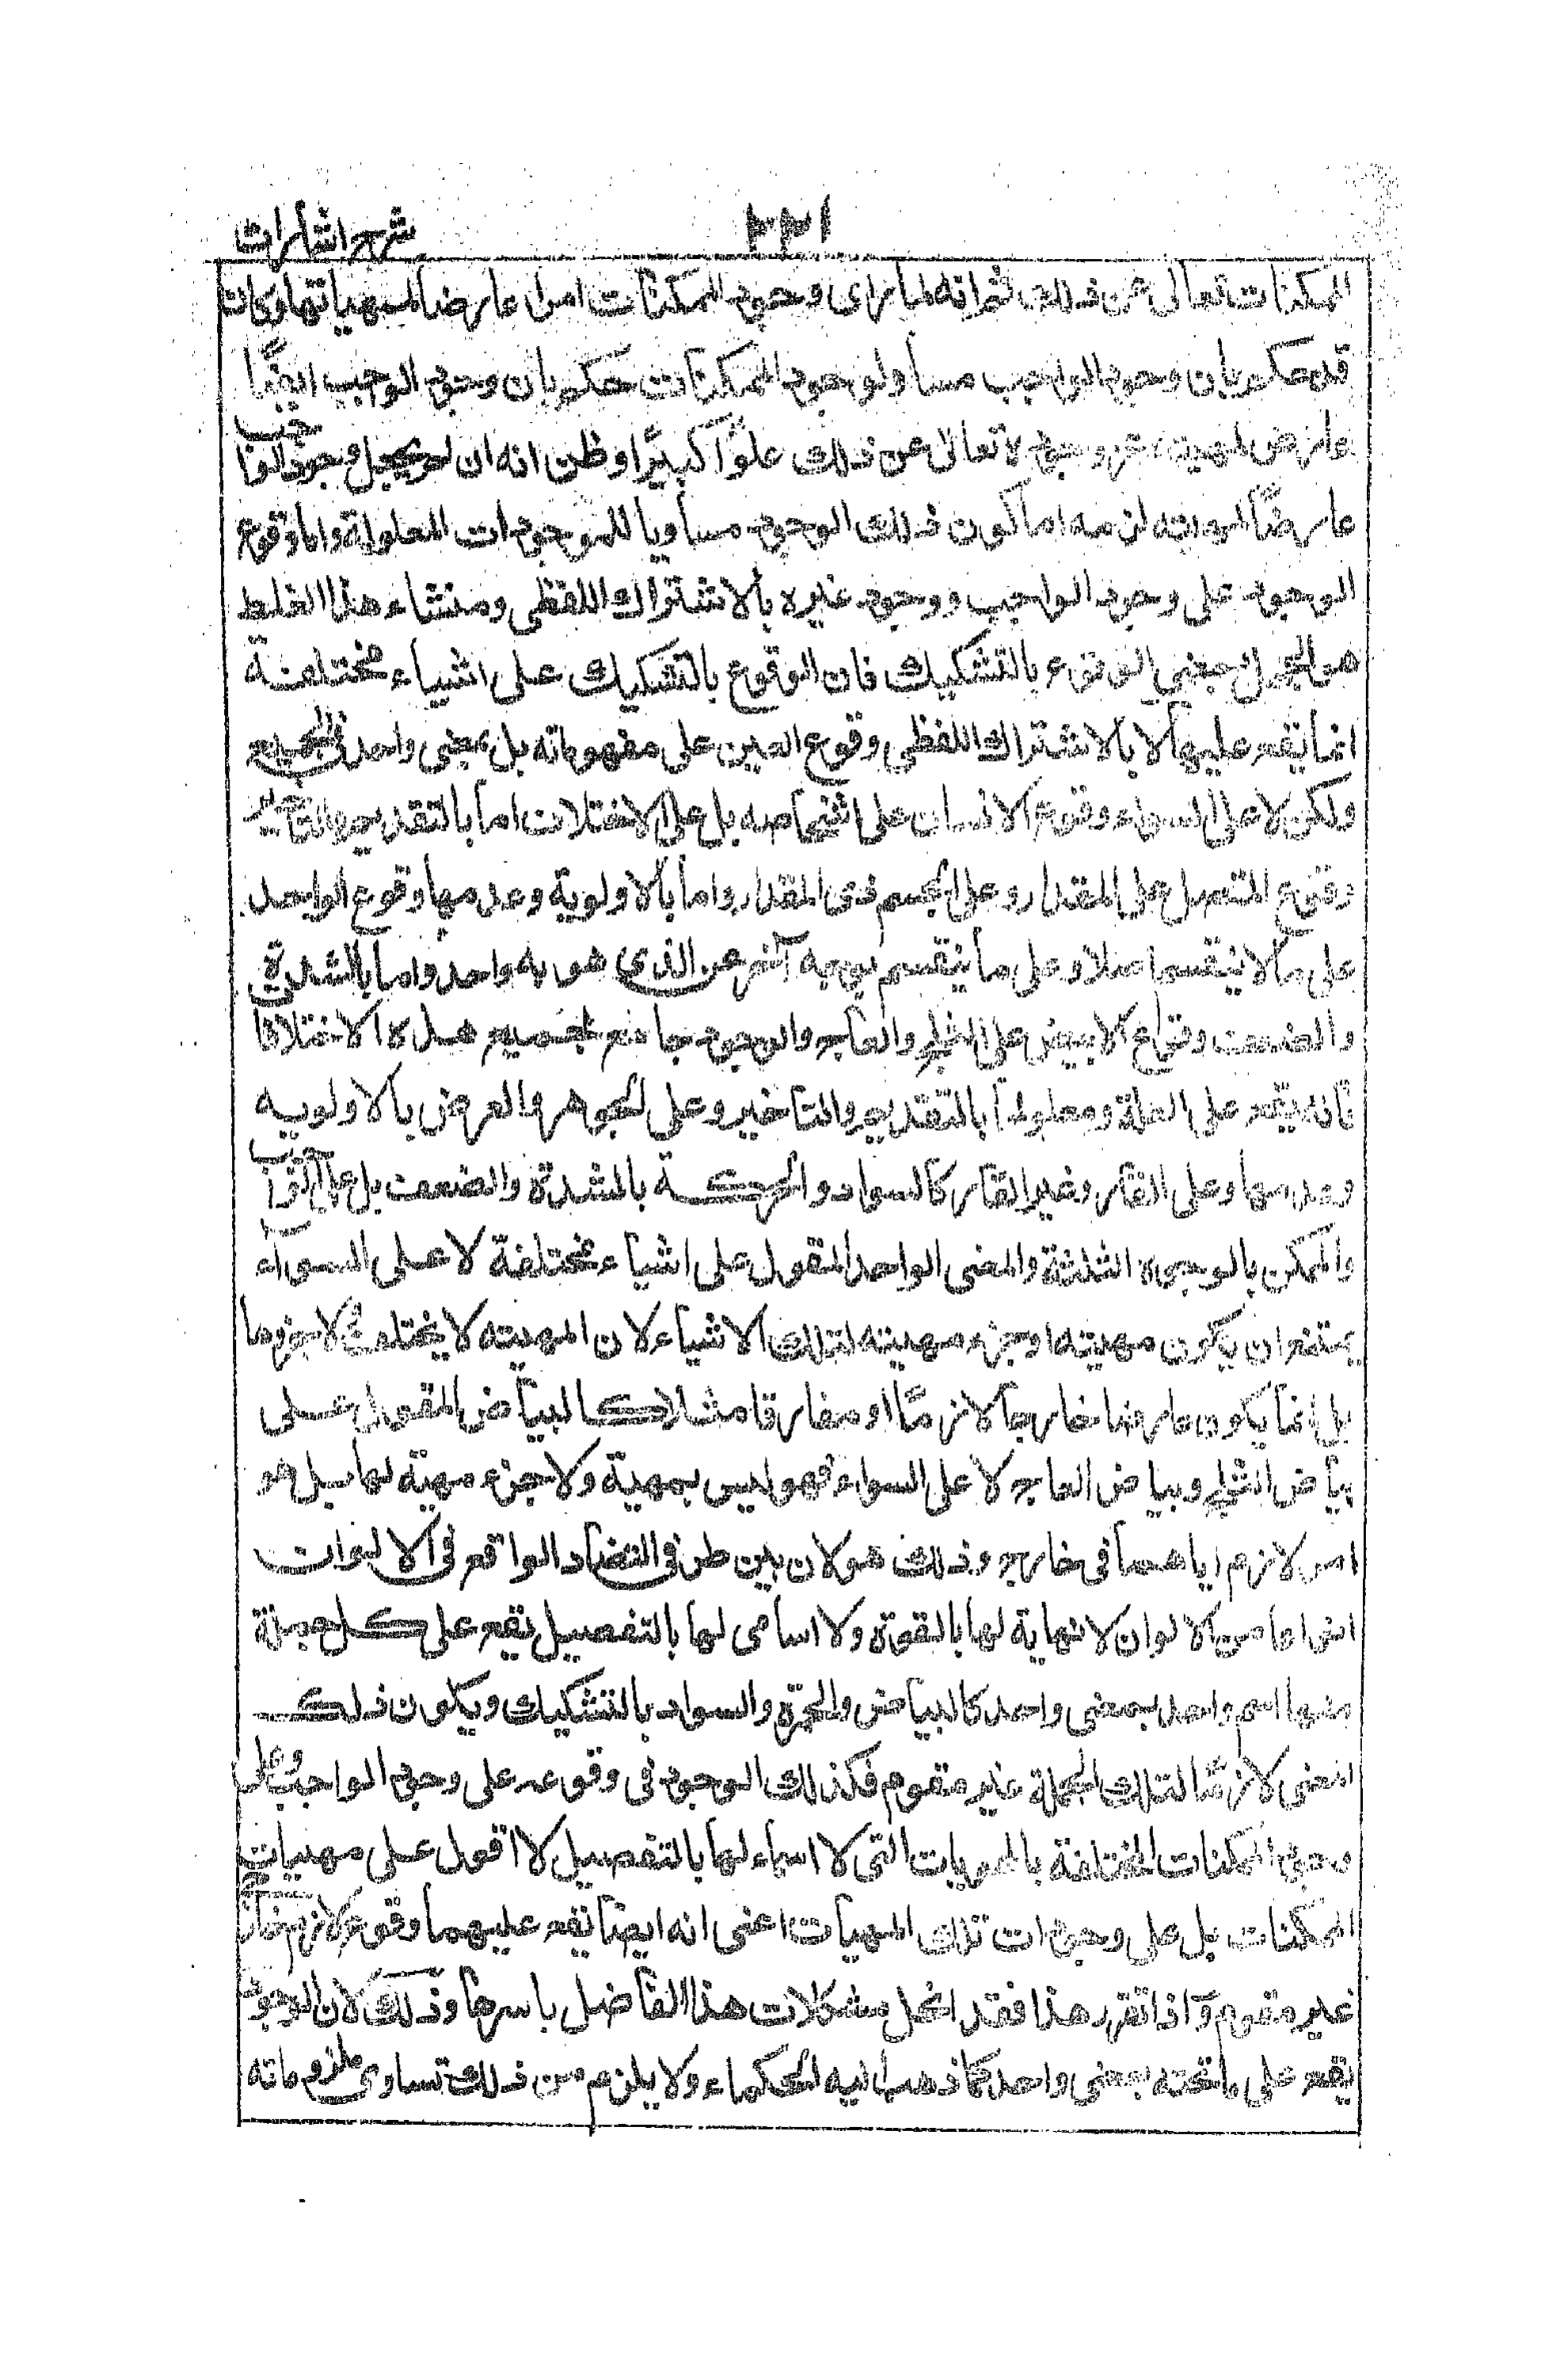 شرح اشارات
٢٢١
الممكنات تعالى عن ذلك ثم انه لما راى وجود الممكنات امرا عارضا لمهياتها وكان
قد حكم بان وجود الواجب مساو لوجود الممكنات حكم بان وجود الواجب ايضًا
عارض لمهيته فمهيته غير وجوده تعالى عن ذلك علوًا كبيرًا وظن انه ان لم يجعل وجود الواجب
عارضًا لمهيته لزمه اما كون ذلك الوجود مساويا للموجودات المعلولة واما وقوع
الوجود على وجود الواجب ووجود غيره بالاشتراك اللفظى ومنشاء هذا الغلط
هو الجهل بمعنى الوقوع بالتشكيك فان الوقوع بالتشكيك على اشياء مختلفة
انما يقع عليها لا بالاشتراك اللفظى وقوع العين على مفهوماته بل بمعنى واحد فى الجميع
ولكن لا على السواء وقوع الانسان على اشخاصه بل على الاختلاف اما بالتقديم والتاخير
وقوع المتصل على المقدار وعلى الجسم ذى المقدار واما بالاولوية وعدمها وقوع الواحد
على ما لا ينقسم اصلا وعلى ما ينقسم بوجه آخر عن الذى هو به واحد واما بالشدة
والضعف وقوع الابيض على الثلج والعاج والوجود جامع لجميع هذه الاختلافات
فانه يقع على العلة ومعلولها بالتقديم والتاخير وعلى الجوهر والعرض بالاولويه
وعدمها وعلى القار وغير القار كالسواد والحركة بالشدة والضعف بل على الواجب
والممكن بالوجوه الثلثة والمعنى الواحد المقول على اشياء مختلفة لا على السواء
يمتنع ان يكون مهيته او جزء مهيته لتلك الاشياء لان المهيته لا يختلف ولا جزوها
بل انما يكون عارضا خارجا لازمًا او مفارقا مثلا كالبياض المقول على
بياض الثلج وبياض العاج لا على السواء فهو ليس بمهية ولا جزء مهية لهما بل هو
امر لازم اياهما فى خارج وذلك هو لان بين طرفى التضاد الواقع فى الالوان
انواعا من الالوان لا نهاية لها بالقوة ولا اسامى لها بالتفصيل يقع على كل جملة
منها اسم واحد بمعنى واحد كالبياض والحمرة والسواد بالتشكيك ويكون ذلك
المعنى لازمًا لتلك الجملة غير مقوم فكذلك الوجود فى وقوعه على وجود الواجب وعلى
وجود الممكنات المختلفة بالهويات التى لا اسماء لها بالتفصيل لا اقول على مهيات
الممكنات بل على وجودات تلك المهيات اعنى انه ايضًا يقع عليهما وقوع لازم خارجى
غير مقوم واذا تقرر هذا فقد انحل مشكلات هذا الفاضل باسرها وذلك لان الوجود
يقع على ما تحته بمعنى واحد كما ذهب اليه الحكماء ولا يلزم من ذلك تساوى ملزوماته